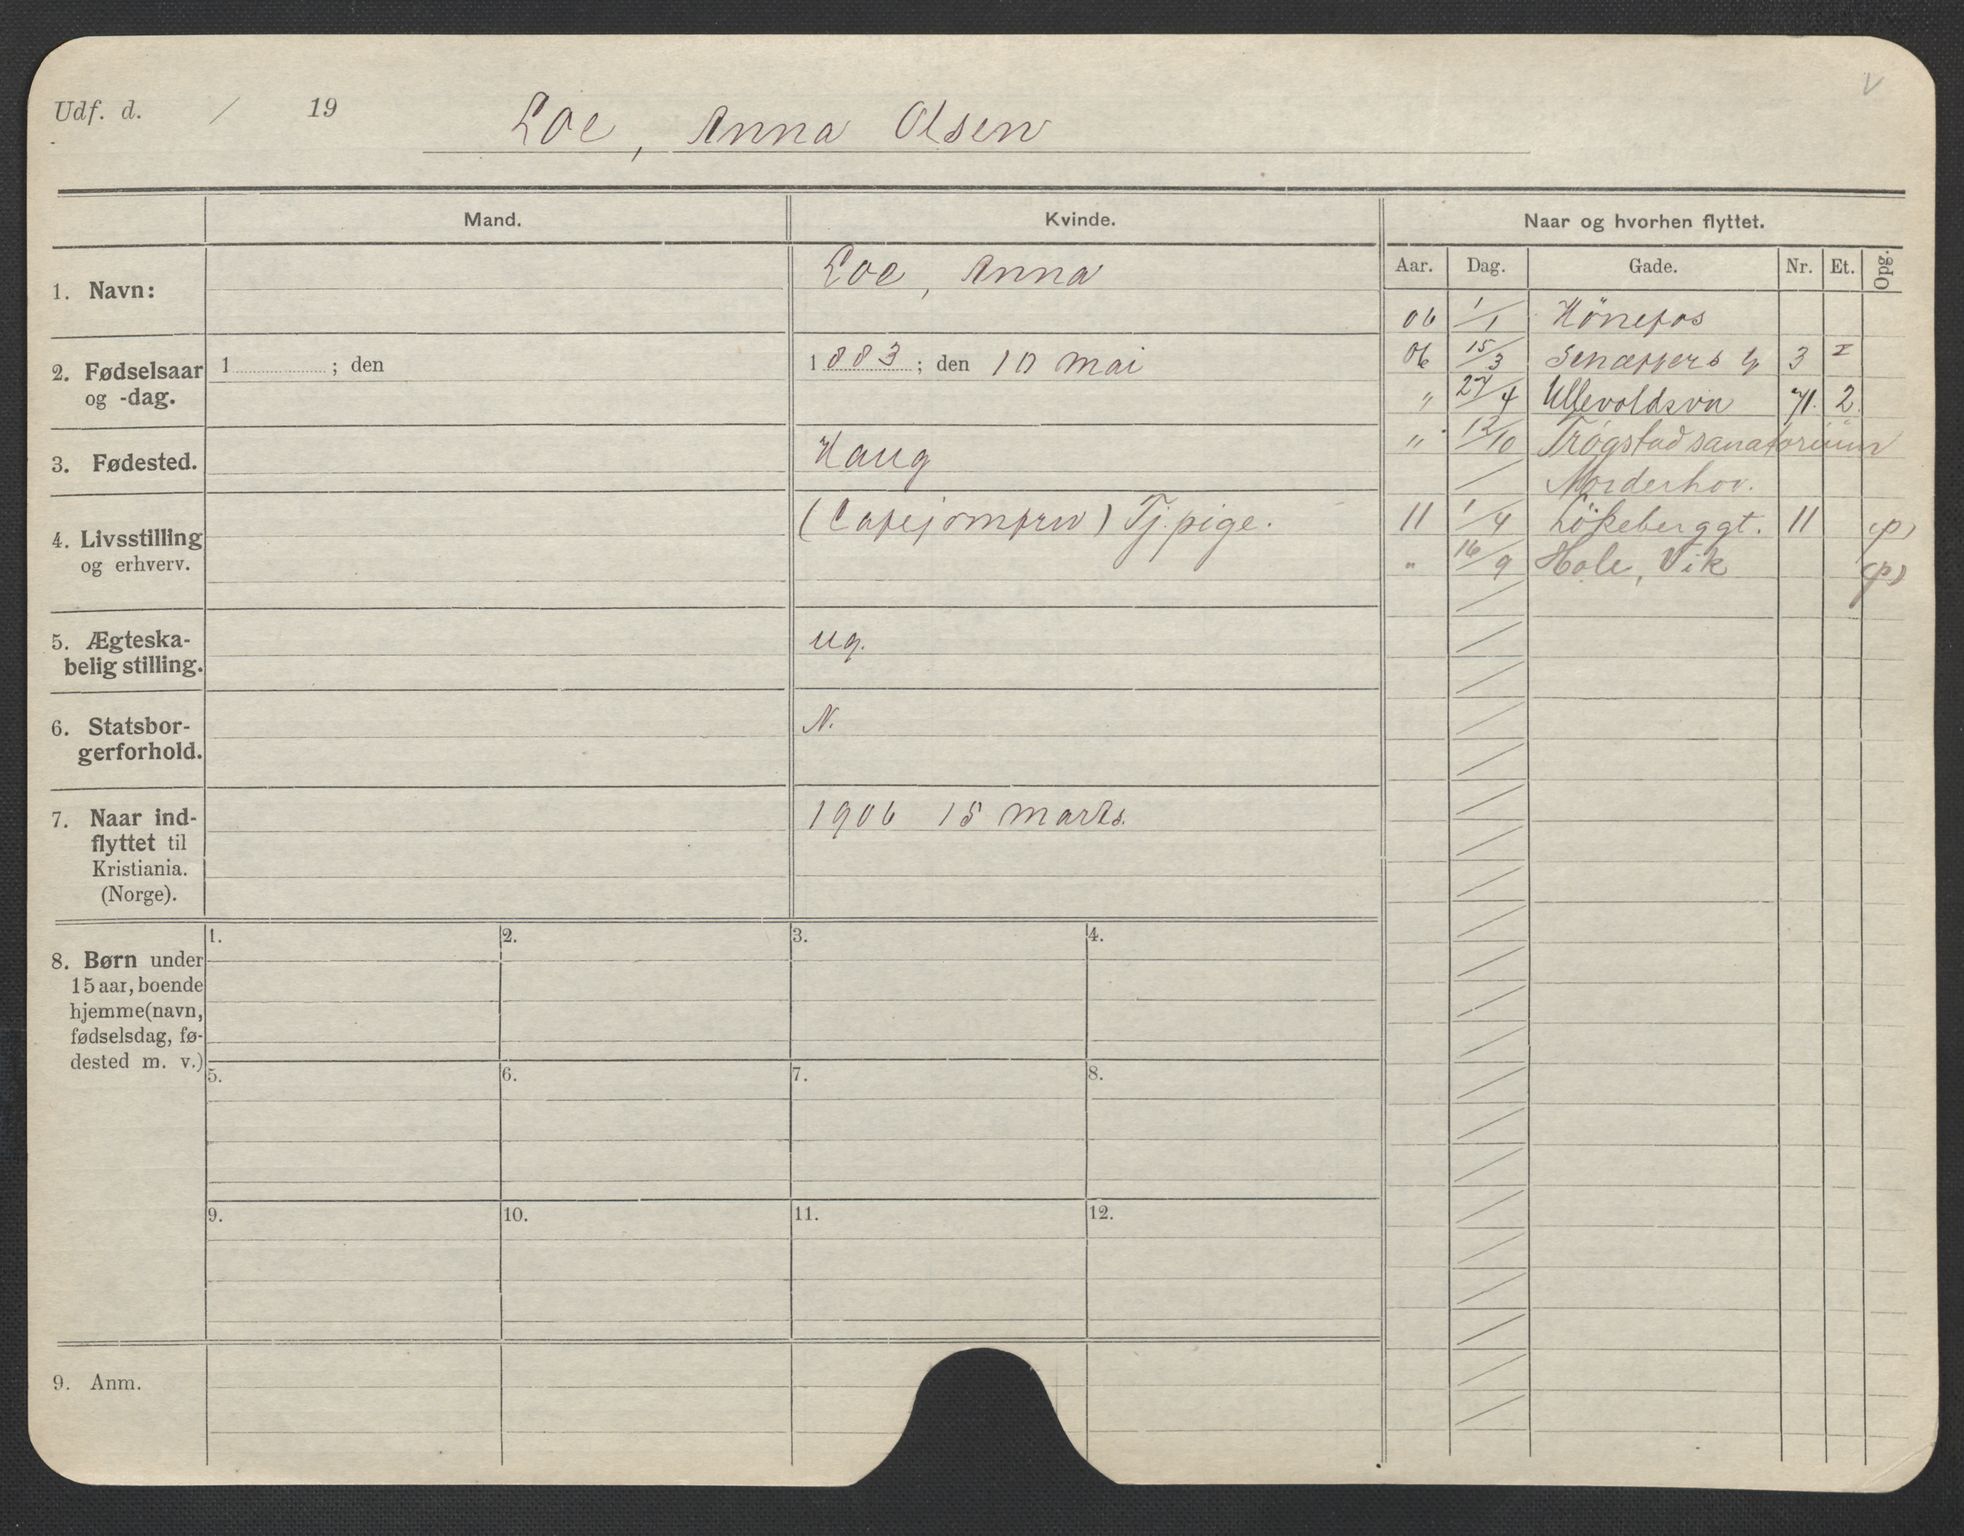 Udf. d. / 19
Loe, Anna Olsen
V
Mand. Kvinde. Naar og hvorhen flyttet.
Aar. Dag. Gade. Nr. Et. Opg.
1. Navn:
Loe, Anna
2. Fødselsaar
og -dag.
1 ; den
1883 ; den 10 Mai
3. Fødested.
Haug
4. Livsstilling
og erhverv.
(Cafejomfru) Tj. pige.
5. Ægteska-
belig stilling.
ug.
6. Statsbor-
gerforhold.
N.
7. Naar ind-
flyttet til
Kristiania.
(Norge).
1906 15 Marts.
06 1/1 Hönefos
06 15/3 3 I
" 27/4 Ullevoldsvn 71. 2.
" 12/10 Trøgstad sanatorium
/ Norderhov.
11 1/4 Lökeberggt. 11 (p)
" 16/9 Hole, Vik (p)
8. Børn under
15 aar, boende
hjemme (navn,
fødselsdag, fø-
dested m. v.)
1. 2. 3. 4.
5. 6. 7. 8.
9. 10. 11. 12.
9. Anm.